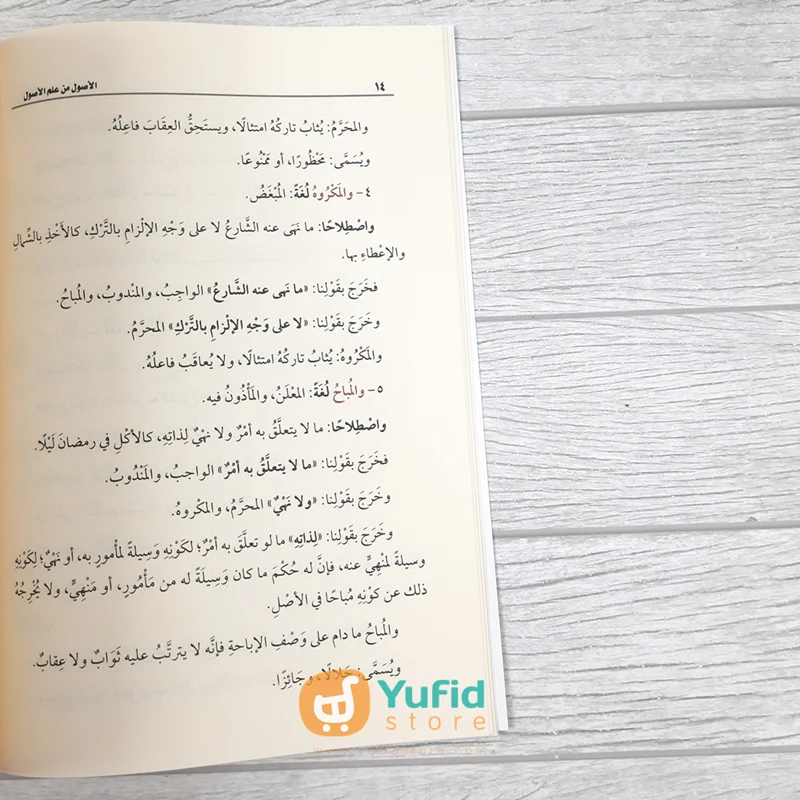 ١٤
الأصول من علم الأصول
والمحَرَّمُ: يُثابُ تاركُهُ امتثالًا، ويستَحِقُّ العِقَابَ فاعِلُهُ.
ويُسَمَّى: مَحْظُورًا، أو مَمْنُوعًا.
٤- والمَكْرُوهُ لُغَةً: المُبْغَضُ.
واصْطِلاحًا: ما نَهَى عنه الشَّارعُ لا على وَجْهِ الإلْزامِ بالتَّرْكِ، كالأَخْذِ بالشِّمالِ
والإعْطاءِ بها.
فخَرَجَ بقَوْلِنا: «ما نَهى عنه الشَّارعُ» الواجِبُ، والمنْدوبُ، والمُباحُ.
وخَرَجَ بقَوْلِنا: «لا على وَجْهِ الإلْزامِ بالتَّرْكِ» المحرَّمُ.
والمَكْرُوهُ: يُثابُ تاركُهُ امتثالًا، ولا يُعاقَبُ فاعلُهُ.
٥- والمُباحُ لُغَةً: المعْلَنُ، والمَأْذُونُ فيه.
واصْطِلاحًا: ما لا يتعلَّقُ به أمْرٌ ولا نهْيٌ لِذاتِهِ، كالأكْلِ في رمضانَ لَيْلًا.
فخَرَجَ بقَوْلِنا: «ما لا يتعلَّقُ به أمْرٌ» الواجبُ، والمَنْدُوبُ.
وخَرَجَ بقَوْلِنا: «ولا نَهْيٌ» المحرَّمُ، والمكْروهُ.
وخَرَجَ بقَوْلِنا: «لِذاتِهِ» ما لو تعلَّقَ به أمْرٌ؛ لكَوْنِهِ وَسِيلةً لمأْمورٍ به، أو نَهْيٌ؛ لِكَوْنِهِ
وسيلةً لمنْهِيٍّ عنه، فإنَّ له حُكْمَ ما كان وَسِيلَةً له من مَأْمُورٍ، أو مَنْهِيٍّ، ولا يُخْرِجُهُ
ذلك عن كوْنِهِ مُباحًا في الأصْلِ.
والمُباحُ ما دام على وَصْفِ الإباحةِ فإنَّه لا يترتَّبُ عليه ثَوَابٌ ولا عِقابٌ.
ويُسَمَّى: حَلالًا، وجَائِزًا.
Yufid
store